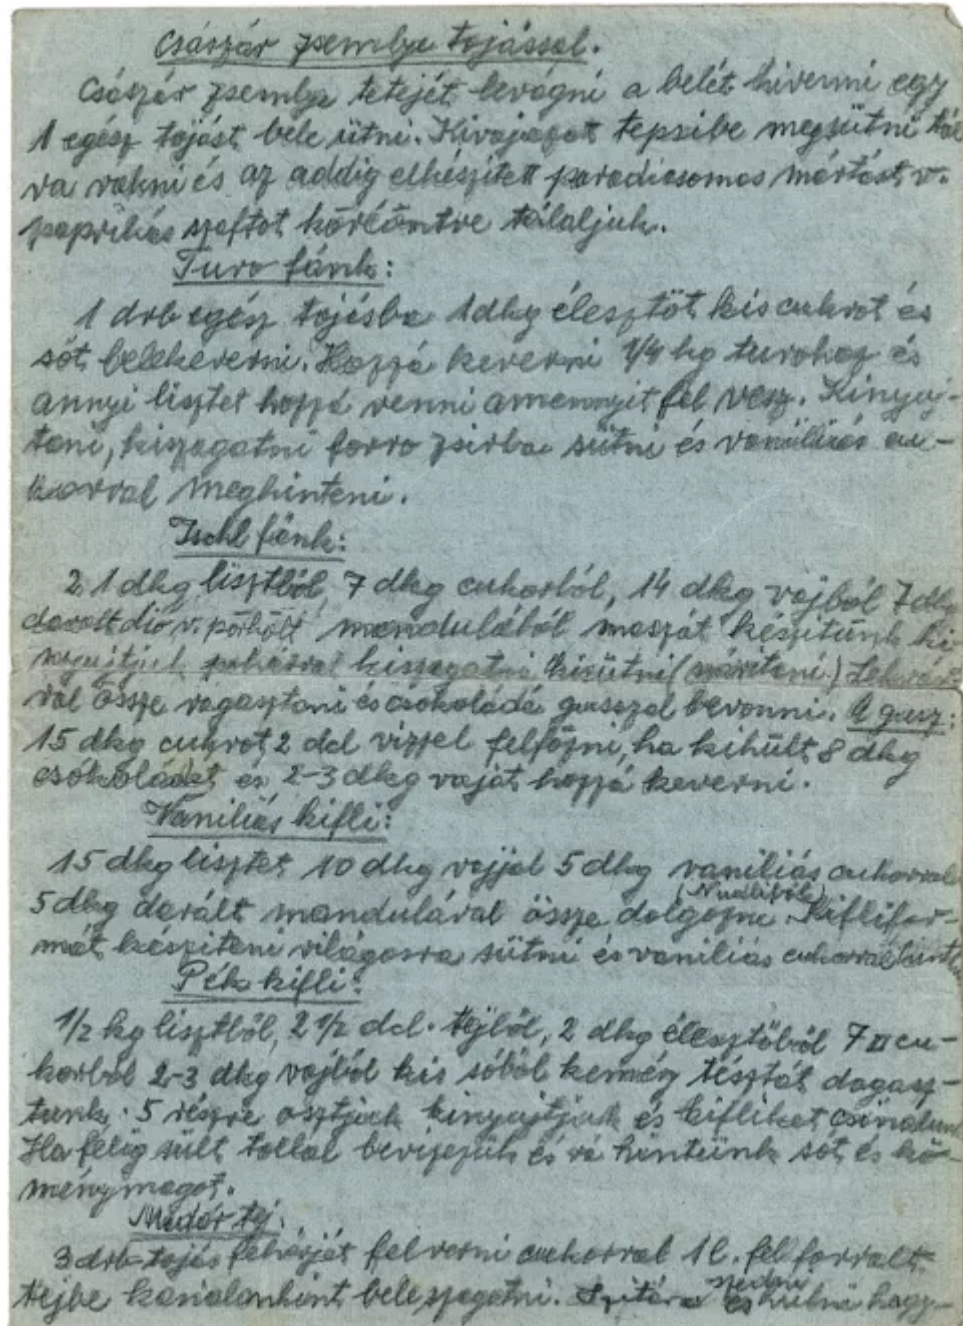 Császár zsemlye tojással.
Császár zsemlye tetejét levágni a belét kivenni egy
1 egész tojást bele ütni. Kivajazott tepsibe megsütni tál
va rakni és az addig elkészitett paradicsomos mártást v.
paprikás szaftot körlöntve tálaljuk.
Turo fánk:
1 drb egész tojásba 1dkg élesztöt kis cukrot és
sót belekeverni. Hozzá keverni 1/4 kg turohoz és
annyi lisztet hozzá venni amennyit fel vesz. Kinyuj-
tani, kiszagatni forro zsirba sütni és vaniliás cu-
korral meghinteni.
Ischl fánk:
21 dkg lisztből, 7 dkg cukorból, 14 dkg vajból 7 dkg
darált dió v. pörkölt mandulából maszát készitünk ki
nyujtjuk pohárral kiszagatni kisütni (száritani.) Lekvár
ral össze ragasztani és csokoládé gusszal bevonni. A gusz:
15 dkg cukrot 2 dcl vizzel felfőzni, ha kihült 8 dkg
csokoládét és 2-3 dkg vaját hozzá keverni.
Vaniliás kifli:
15 dkg lisztet 10 dkg vajjal 5 dkg vaniliás cukorral
(Nudliból)
5 dkg darált mandulával össze dolgozni Kiflifor-
mát készíteni világosra sütni és vaniliás cukorral
Pék kifli:
1/2 kg lisztből, 2 1/2 dcl. tejből, 2 dkg élesztőből 7 " cu-
korból 2-3 dkg vajból kis sóból kemény tésztát dagasz-
tunk. 5 részre osztjuk kinyujtjuk és kifliket csinálunk
Ha félig sült tollal bevizezük és rá hintünk sót és kö-
ménymagot.
Madár tej.
3 drb tojás fehérjét felverni cukorral 1 l. felforralt
szedni
tejbe kanalanként beleszagatni. Szitára és hülni hagy-